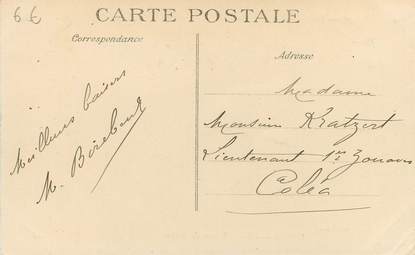 6€
CARTE POSTALE
Correspondance
Adresse
Meilleurs baisers
M.
Madame
Monsieur Kratzert
Lieutenant 1er Zouaves
Coléa